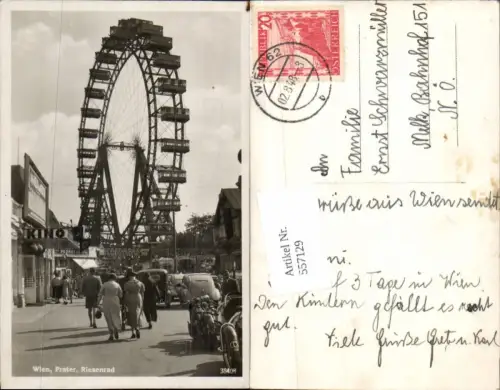 KINO
Wien, Prater, Riesenrad
20
REPUBLIK
ÖSTERREICH
WIEN 62
02.8.49
An
Familie
Ernst Schwarzmüller
Melk, Bahnhof 151
N. Ö.
Artikel Nr.
557129
rüße aus Wien sendet
ni.
3 Tage in Wien.
Den Kindern gefällt es recht
gut.
Viele Grüße Gret. u. Karl